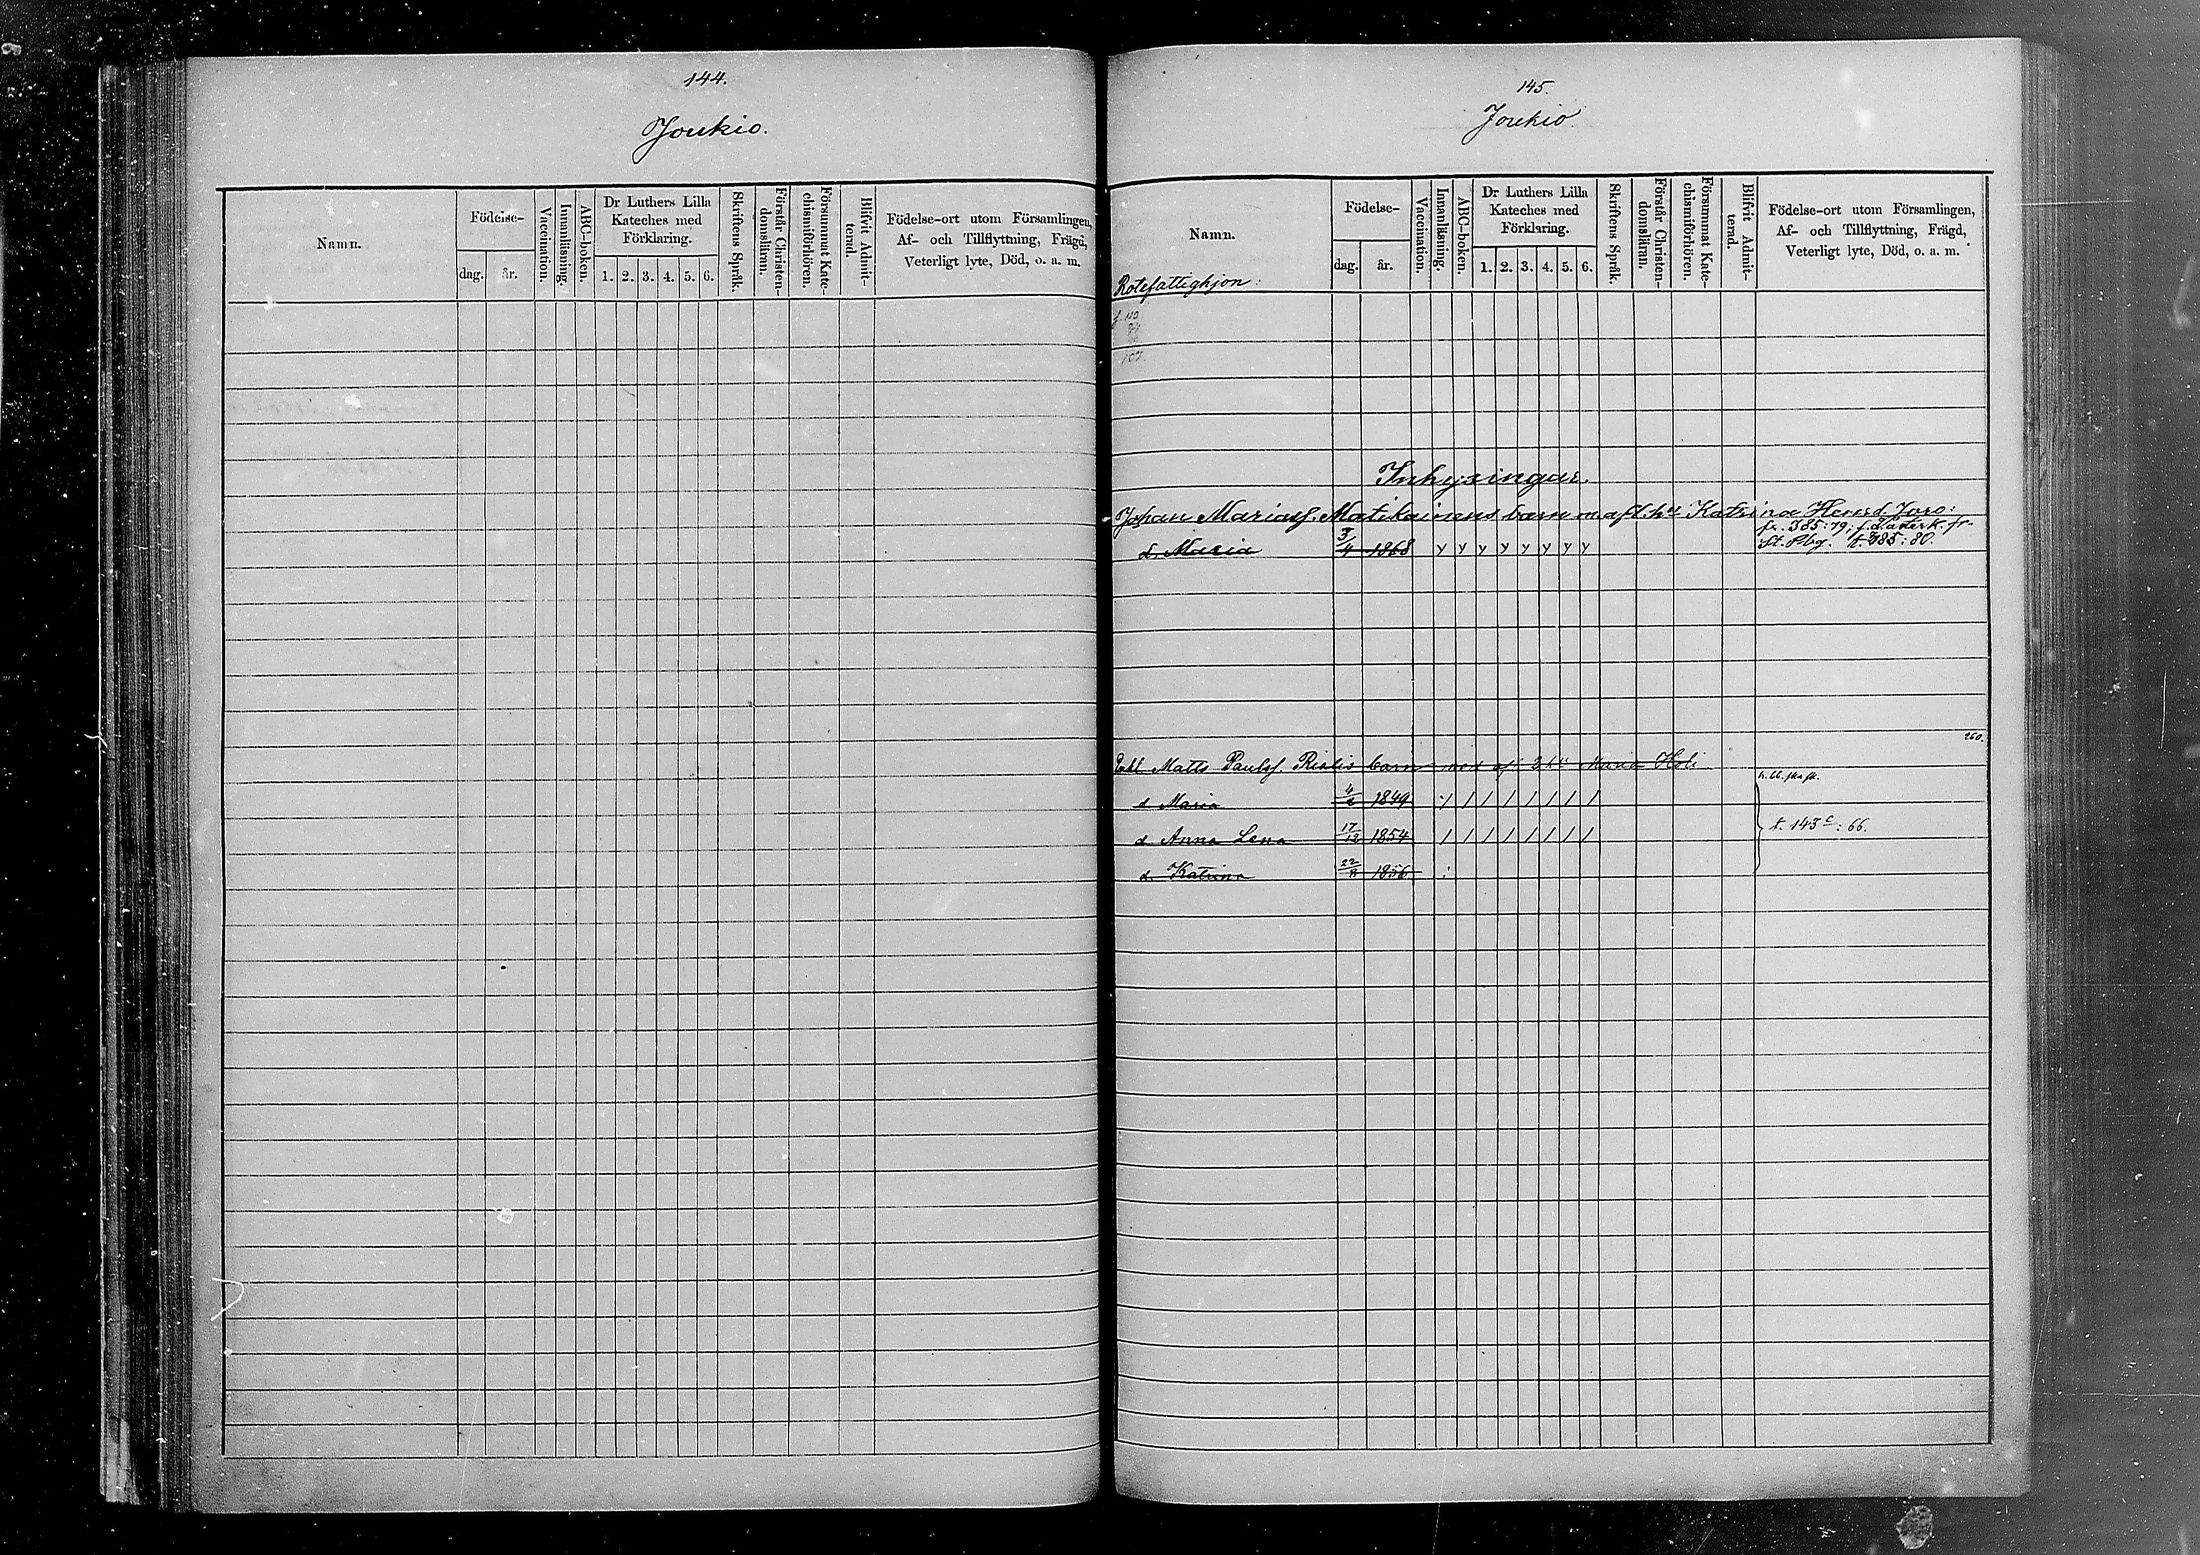 144.
Joukio.
Namn.
Födelse-
dag. år.
Vaccination.
Innanläsning.
ABC-boken.
Dr Luthers Lilla
Kateches med
Förklaring.
1. 2. 3. 4. 5. 6.
Skriftens Språk.
Förstår Christen-
domsläran.
Försummat Kate-
chismiförhören.
Blifvit Admit-
terad.
Födelse-ort utom Församlingen,
Af- och Tillflyttning, Frägd,
Veterligt lyte, Död, o. a. m.
145.
Joukio.
Namn.
Födelse-
dag. år.
Vaccination.
Innanläsning.
ABC-boken.
Dr Luthers Lilla
Kateches med
Förklaring.
1. 2. 3. 4. 5. 6.
Skriftens Språk.
Förstår Christen-
domsläran.
Försummat Kate-
chismiförhören.
Blifvit Admit-
terad.
Födelse-ort utom Församlingen,
Af- och Tillflyttning, Frägd,
Veterligt lyte, Död, o. a. m.
Rotefattighjon:
107.
Inhysingar.
Johan Mariasf. Matikainens barn m. afl. hu Katrina Joro:
d. Maria 3/4 1868 y y y y y y y y fr. 385:79; fr.
St. Pbg. t. 385:80.
260.
Matts Paulsf. barn med afl. hu Maria
d Maria 1849 / / / / / / / /
d. Anna Lena 17/12 1854 / / / / / / / / t. 143 c: 66.
d. Katrina 22/8 1856